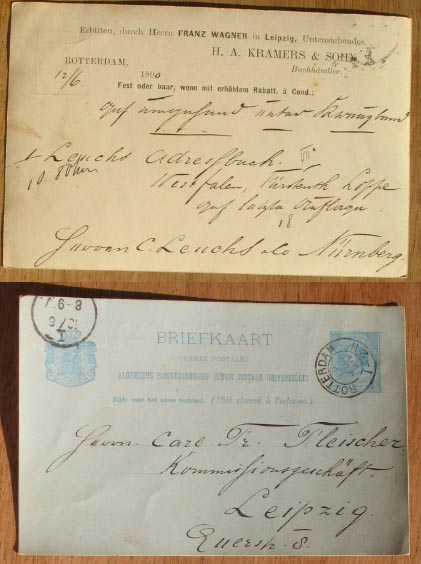 Erbitten, durch Herrn FRANZ WAGNER in Leipzig, Untenstehendes.
H. A. KRAMERS & SOHN
Buchhändler.
ROTTERDAM,
12/6 1890
Fest oder baar, wenn mit erhöhtem Rabatt, à Cond.:
unter Kreuzband
1 Leuchs Adressbuch. VII
Westfalen, Fürstenth Lippe
18
Herren C. Leuchs & Co Nürnberg.
8-9 V.
13/6
I
BRIEFKAART
(CARTE POSTALE)
ALGEMEENE POSTVEREENIGING (UNION POSTALE UNIVERSELLE)
Zijde voor het adres bestemd. (Côté réservé à l'adresse.)
ROTTERDAM
Herrn Carl Fr. Fleischer
Kommissionsgeschäft.
Leipzig.
Querstr. 8.